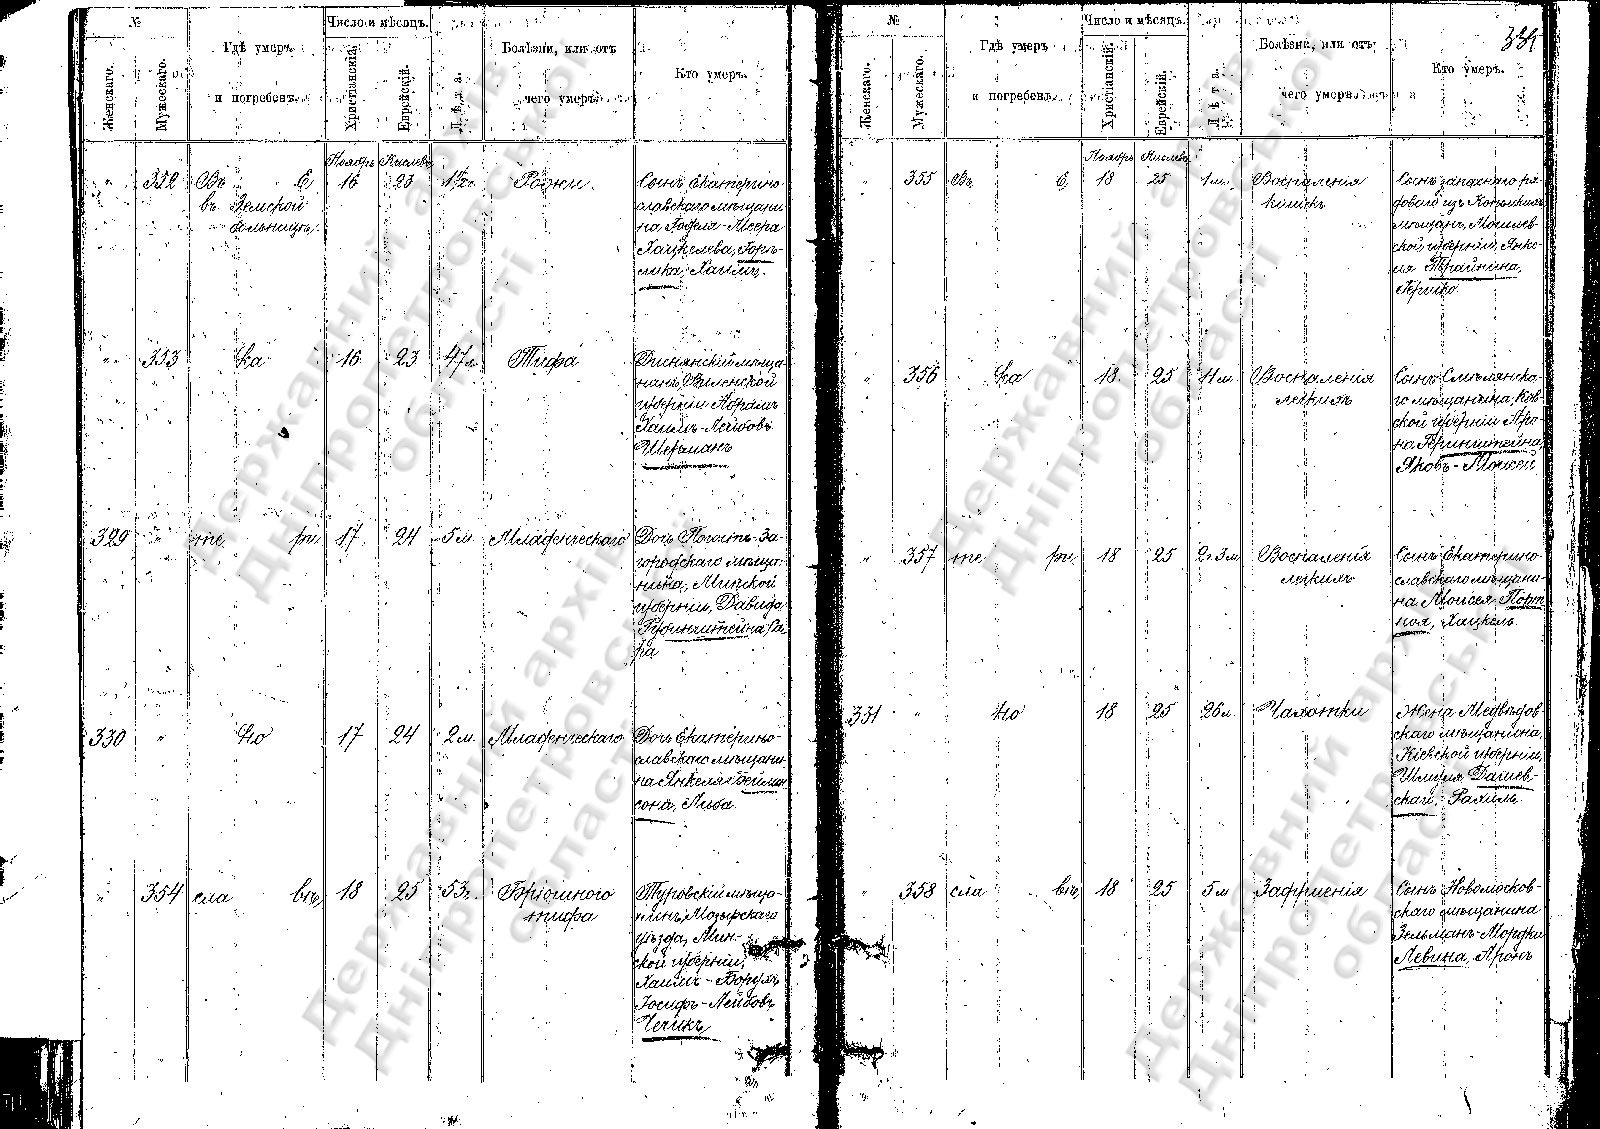 № Число и мѣсяцъ.
Женскаго. Мужескаго. Гдѣ умеръ и погребенъ. Христіанскій. Еврейскій. Лѣта. Болѣзни, или отъ чего умеръ. Кто умеръ.
Ноябрь Кислевъ
" 352 Въ Е 16 23 Рожи. Сынъ Екатерино-
въ Земской славскаго мѣщани-
больницѣ
Хацкелева, Горѣ-
лика, Хаимъ.
" 353 ка 16 23 47 л. Тифа Диснянскій мѣща-
нинъ, Виленской
губерніи Абрамъ
Хаимъ-Лейбовъ
Шерманъ
329 " те ри 17 24 5 м. Младенческаго Дочь Погостъ-За-
городскаго мѣща-
нина, Минской
губерніи, Давида
Рубинштейна, Са-
ра
330 " но 17 24 2 м. Младенческаго Дочь Екатерино-
славскаго мѣщани-
на Янкеля
сона, Либа.
" 354 сла въ, 18 25 53 г. Брюшного Туровскій мѣща-
тифа нинъ, Мозырскаго
уѣзда, Мин-
ской губерніи,
Хаимъ-Борухъ,
Іосифъ-Лейбовъ
Чечикъ
№ Число и мѣсяцъ.
Женскаго. Мужескаго. Гдѣ умеръ и погребенъ. Христіанскій. Еврейскій. Лѣта. Болѣзни, или отъ чего умеръ. Кто умеръ.
Ноябрь Кислевъ
" 355 Въ Е 18 25 1 м. Воспаленія Сынъ запаснаго ря-
кишекъ дового изъ
мѣщанъ, Могилев-
ской губерніи, Янке-
ля Прайнина,
Гершко.
" 356 ка 18 25 11 м. Воспаленія Сынъ Смѣлянска-
легкихъ го мѣщанина, Кіев-
ской губерніи Аро-
на Беринштейна,
Яковъ-Моисей
" 357 те ри, 18 25 2 г 3 м. Воспаленія Сынъ Екатерино-
легкихъ славскаго мѣщани-
на Моисея Порт-
ноя, Хацкель
331 " но 18 25 26 л. Чахотки Жена Медвѣдов-
скаго мѣщанина,
Кіевской губерніи,
Шмуля Дашев-
скаго, Рахиль
" 358 сла въ, 18 25 5 м. Задушенія Сынъ Новомосков-
скаго мѣщанина
Зельманъ-Мордки
Левина, Аронъ
Державний архів
Дніпропетровської
області